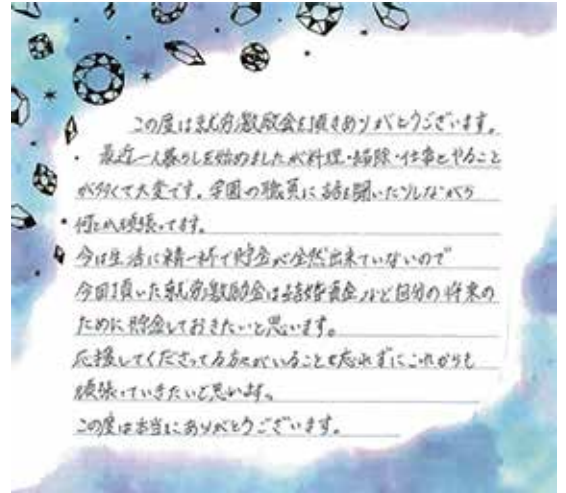 この度は就労激励金を頂きありがとうございます。
最近一人暮らしを始めましたが料理・掃除・仕事とやること
が多くて大変です。学園の職員に話を聞いたりしながら
何とか頑張ってます。
今は生活に精一杯で貯金が全然出来ていないので
今回頂いた就労激励金は結婚資金など自分の将来の
ために貯金しておきたいと思います。
応援してくださってる方々がいることを忘れずにこれからも
頑張っていきたいと思います。
この度は本当にありがとうございます。